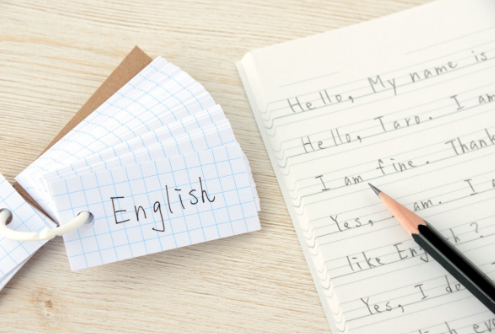 English
Hello, My name is
Hello, Taro. I am
I am fine. Thank
Yes, I am. I
like English?
Yes, I do. I